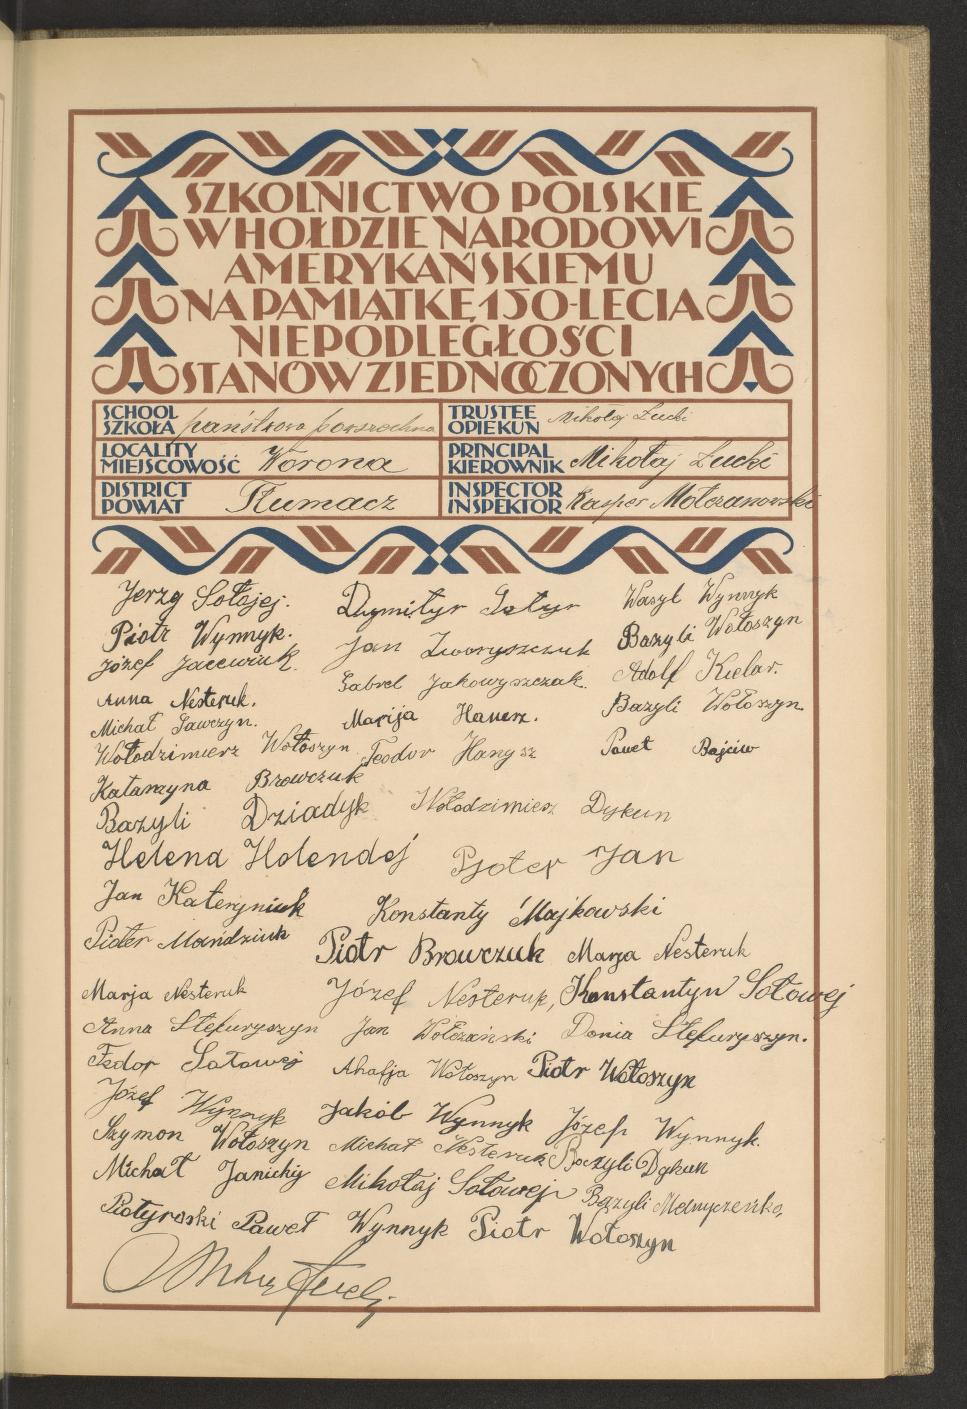 SZKOLNICTWO POLSKIE
W HOŁDZIE NARODOWI
AMERYKAŃSKIEMU
NA PAMIĄTKĘ 150-LECIA
NIEPODLEGŁOŚCI
STANÓW ZJEDNOCZONYCH
SCHOOL SZKOŁA państwowa powszechna
TRUSTEE OPIEKUN Mikołaj Łucki
LOCALITY MIEJSCOWOŚĆ Worona
PRINCIPAL KIEROWNIK Mikołaj Łucki
DISTRICT POWIAT Tłumacz
INSPECTOR INSPEKTOR Kasper Mołczanowski
Jerzy Sołojej. Dymityr Wasyl Wynnyk
Piotr Wynnyk. Jan Bazyli Wołoszyn
Józef Jacewiuk. Gabrel Jakowyszczak. Adolf Kielar.
Anna Nesteruk. Marija Bazyli Wołoszyn
Michał Sawczyn. Paweł Bojciw
Wołodzimierz Wołoszyn Teodor Hanysz
Katarzyna Browczuk
Bazyli Dziadyk Wołodzimierz Dykun
Helena Holendej Pjoter Jan
Jan Kateryniuk Konstanty Majkowski
Pioter Mandziuk Piotr Browczuk Marja Nesteruk
Marja Nesteruk Józef Nesteruk, Konstantyn Sołowej
Anna Stefuryszyn Jan Wołczański Donia Stefuryszyn.
Fedor Sołowej Ahafja Wołoszyn Piotr Wołoszyn
Józef Wynnyk Jakób Wynnyk Józef Wynnyk.
Szymon Wołoszyn Michał Nesteruk Bazyli Dykun
Michał Janickij Mikołaj Sołowej Bazyli
Paweł Wynnyk Piotr Wołoszyn